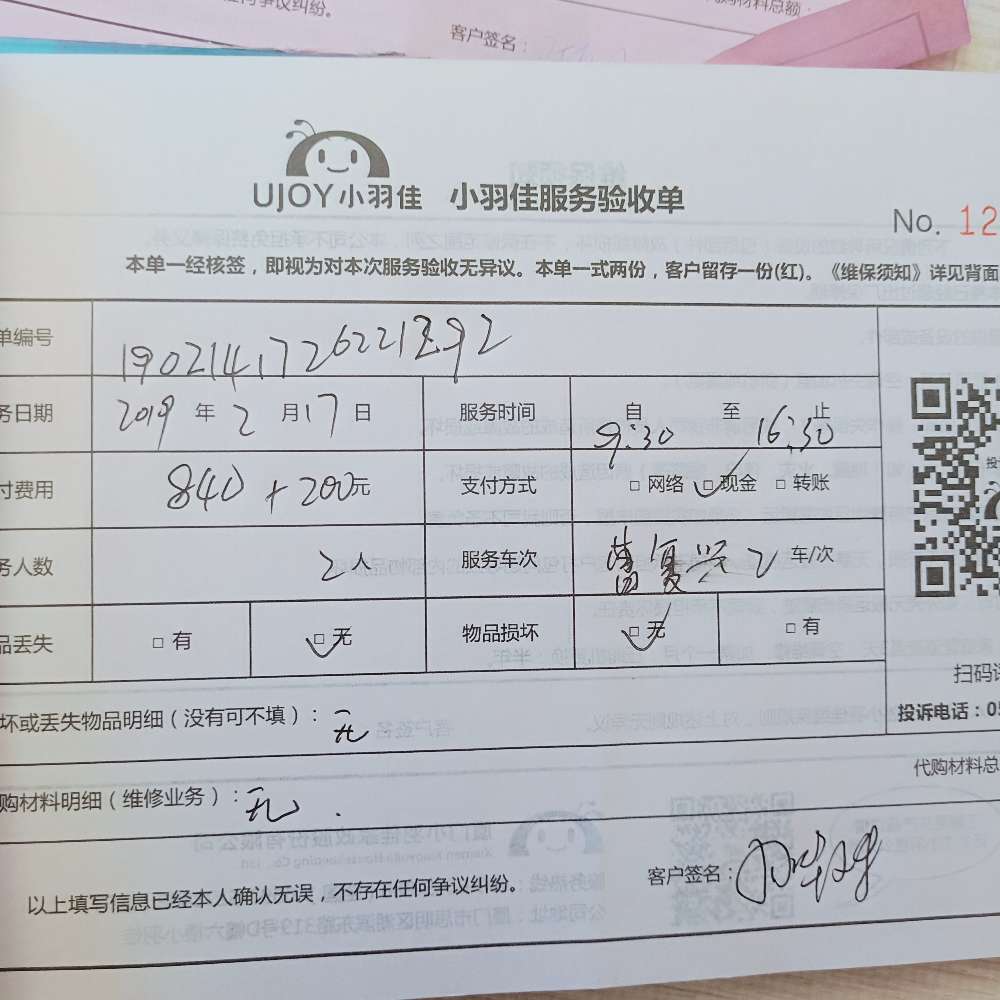 何争议纠纷。
购材料总额：
客户签名：
UJOY 小羽佳 小羽佳服务验收单
No. 12
本单一经核签，即视为对本次服务验收无异议。本单一式两份，客户留存一份(红)。《维保须知》详见背面
单编号
务日期 2019 年 2 月 17 日 服务时间 自 9:30 至 16:30 止
付费用 840 + 200元 支付方式 □ 网络 □ 现金 □ 转账
务人数 2人 服务车次 2 车/次
品丢失 □ 有 □ 无 物品损坏 □ 无 □ 有
扫码
坏或丢失物品明细（没有可不填）：无
投诉电话：05
代购材料总
购材料明细（维修业务）：无.
以上填写信息已经本人确认无误，不存在任何争议纠纷。
客户签名：